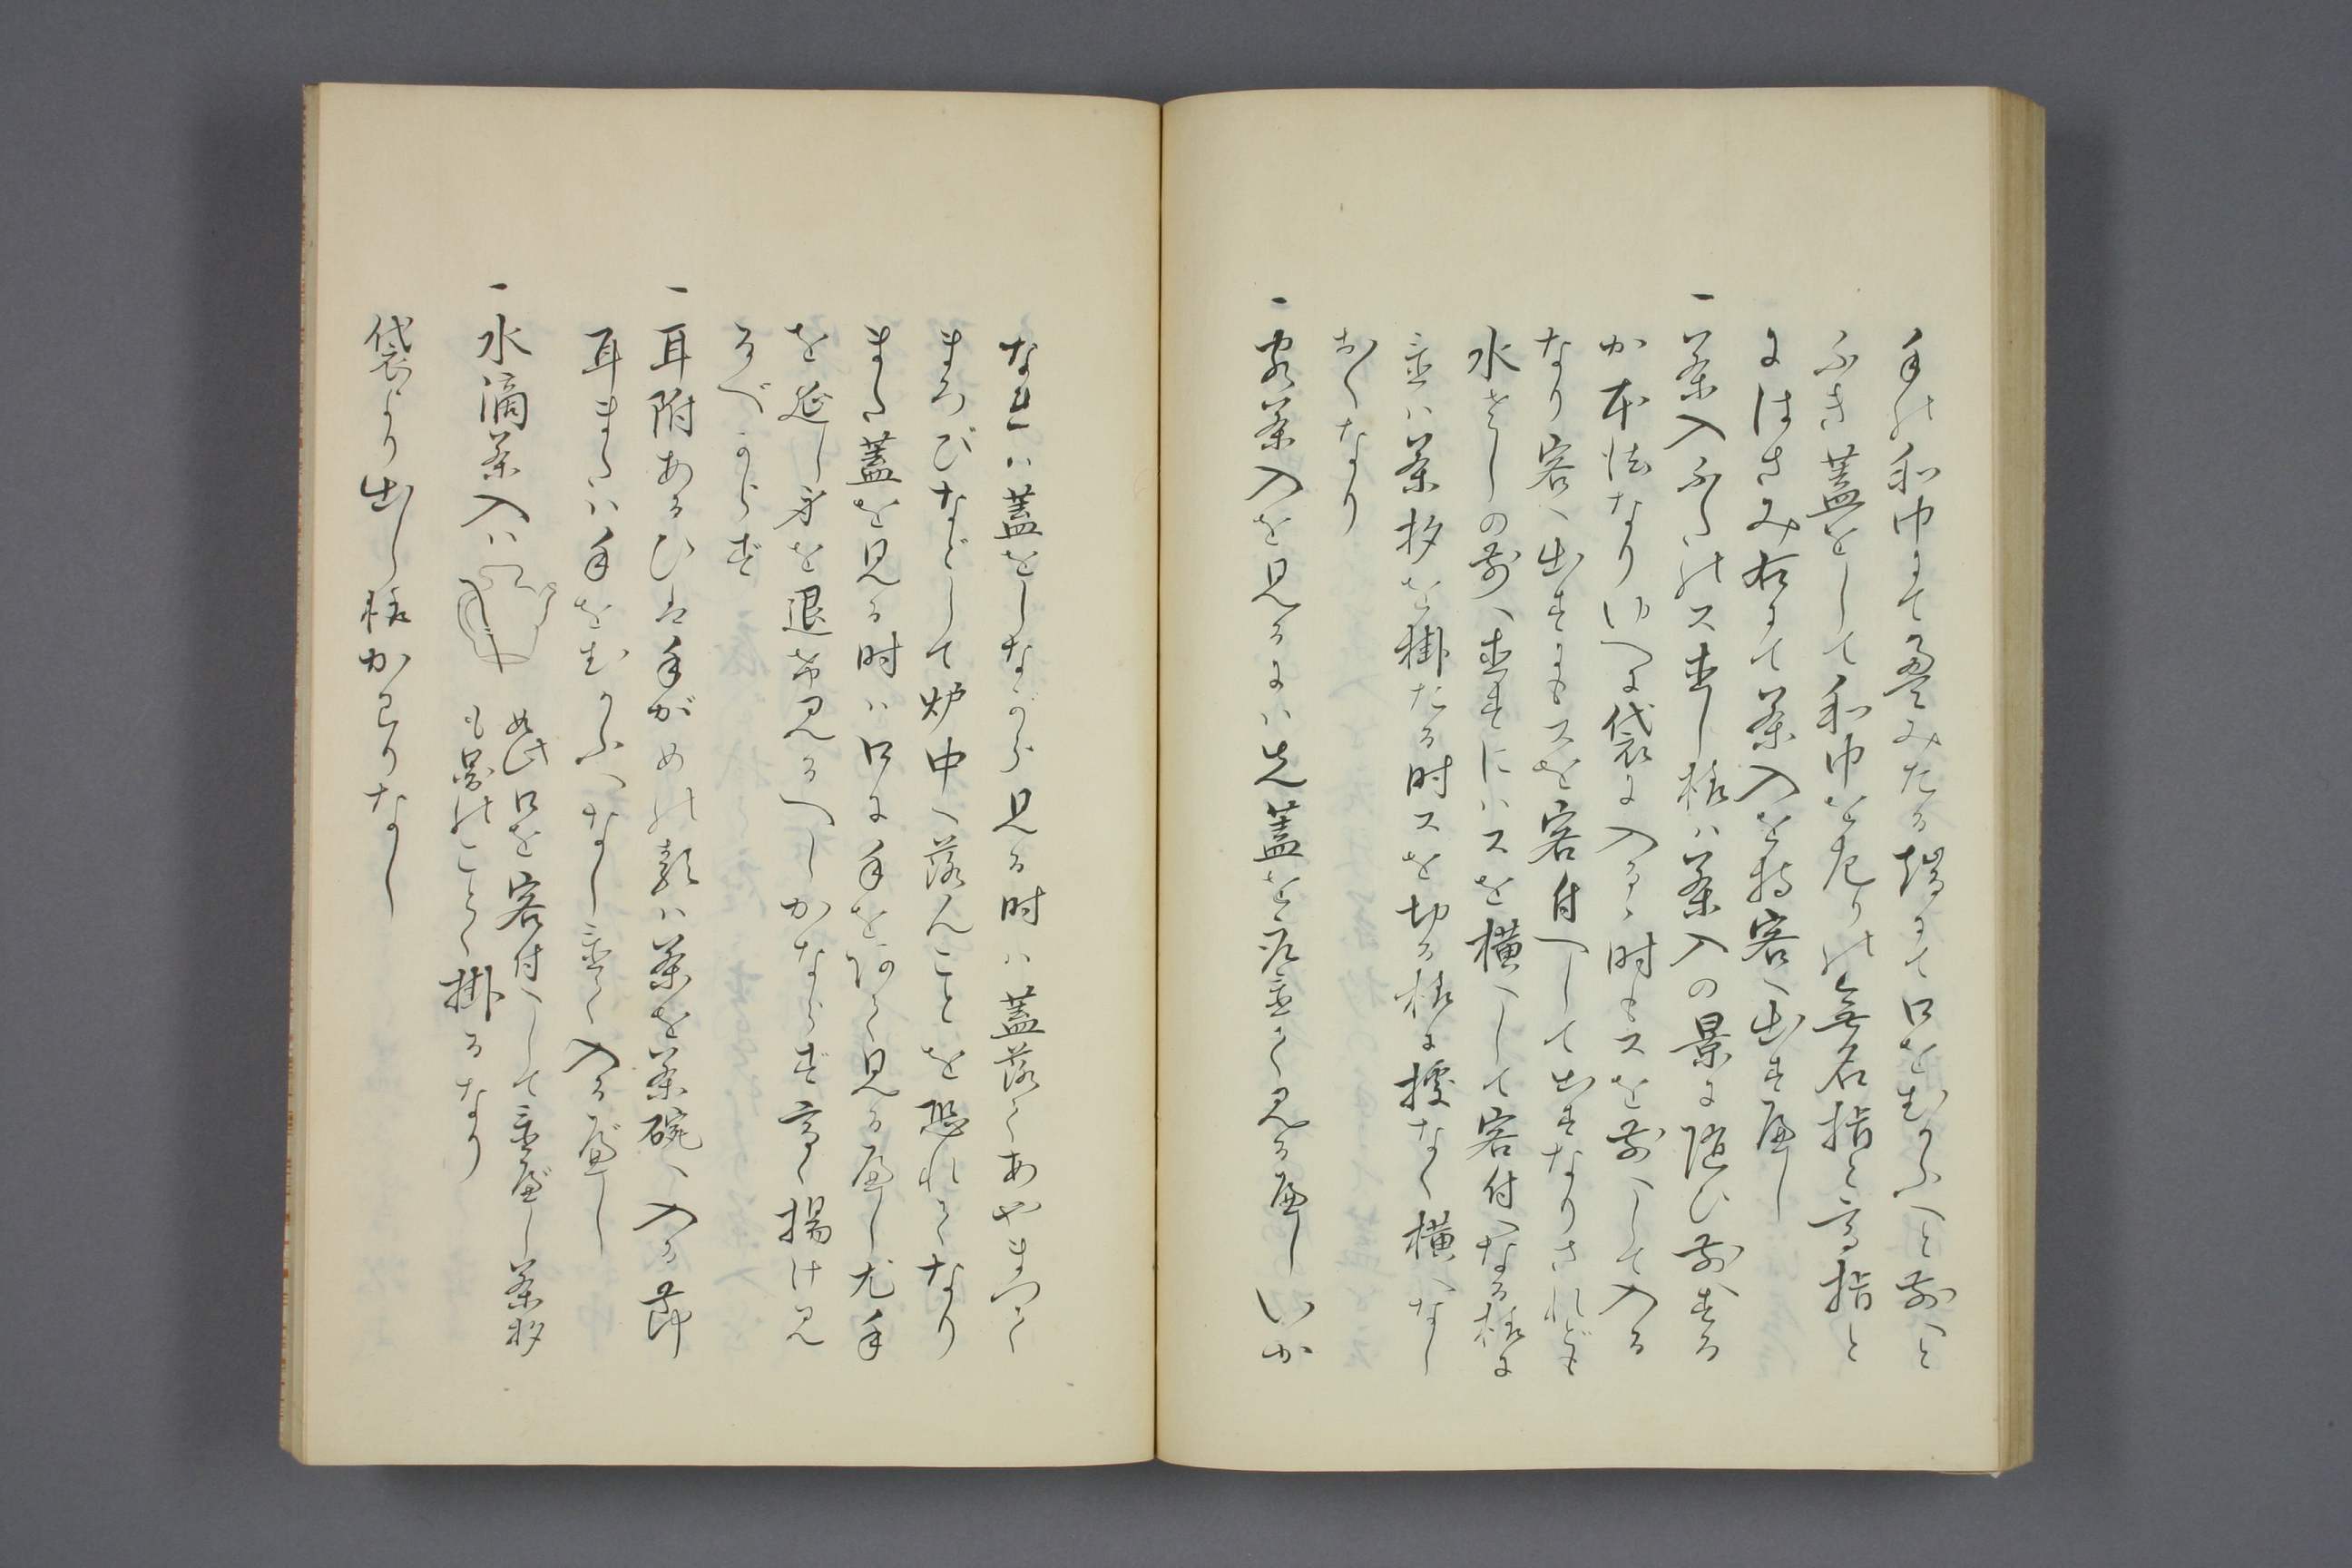 手の和巾にて畳みたる端にて口をむかふへと前へと
ふき蓋をして和巾を左りの無名指と高指と
にはさみ右にて茶入を持客へ出す・し
一茶入ふたのス直し様ハ茶入の景に随び前へする
か本法なりゆへに袋に入るゝ時もスを前へして入る
なり客へ出すにもスを客付へして出すなりされども
水さしの前へ直すにハスを横へして客付へなる様に
置ハ茶杓を掛たる時スを切る様に・なく横へなし
おくなり
一客茶入を見るにハ先蓋を取置て見る・しいか
なれハ蓋をしながら見る時ハ蓋落てあやまつて
まろびなどして炉中へ落んことを恐れてなり
また蓋を見る時ハ口に手を・て見る・し尤手
を延し身を退き見るへしかならず高く揚け見
るべからず
一耳附あるひは手がめの類ハ茶を茶碗へ入る節
耳または手をむかふへなし置て入る・し
一水滴茶入ハ
如此口を客付へして置・し茶杓
も図のことく掛るなり
袋より出し様かわりなし